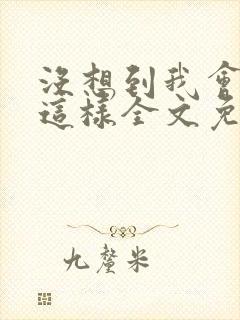 沒想到我會
這樣全文免
九釐米